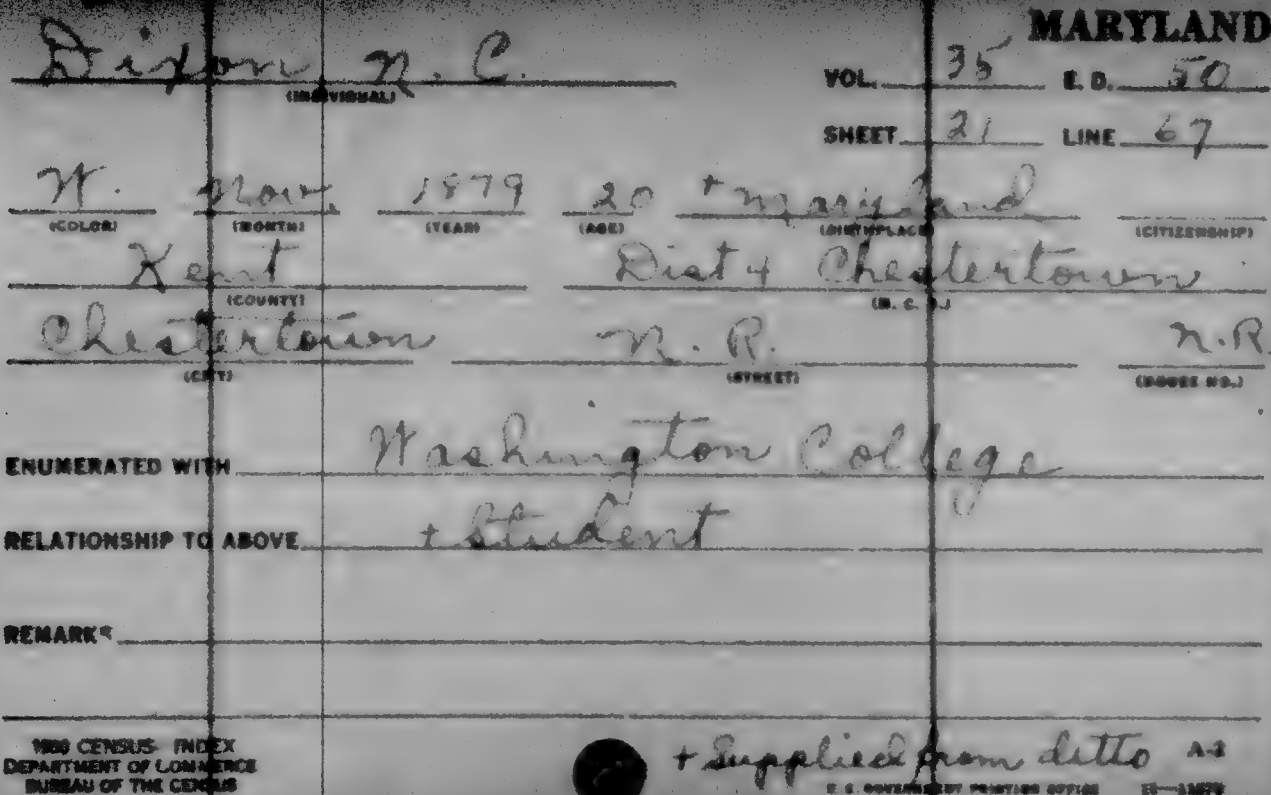 MARYLAND
Dixon N. C.
(INDIVIDUAL)
VOL. 35 E. D. 50
SHEET 21 LINE 67
W. Nov. 1879 20 + Maryland
(COLOR) (MONTH) (YEAR) (AGE) (BIRTHPLACE) (CITIZENSHIP)
Kent Dist 4 Chestertown
(COUNTY) (M. C. D.)
Chestertown N. R. N. R.
(CITY) (STREET) (HOUSE NO.)
ENUMERATED WITH Washington College
RELATIONSHIP TO ABOVE + Student
REMARKS
+ Supplied from ditto A-2
1900 CENSUS INDEX
DEPARTMENT OF COMMERCE
BUREAU OF THE CENSUS
U. S. GOVERNMENT PRINTING OFFICE